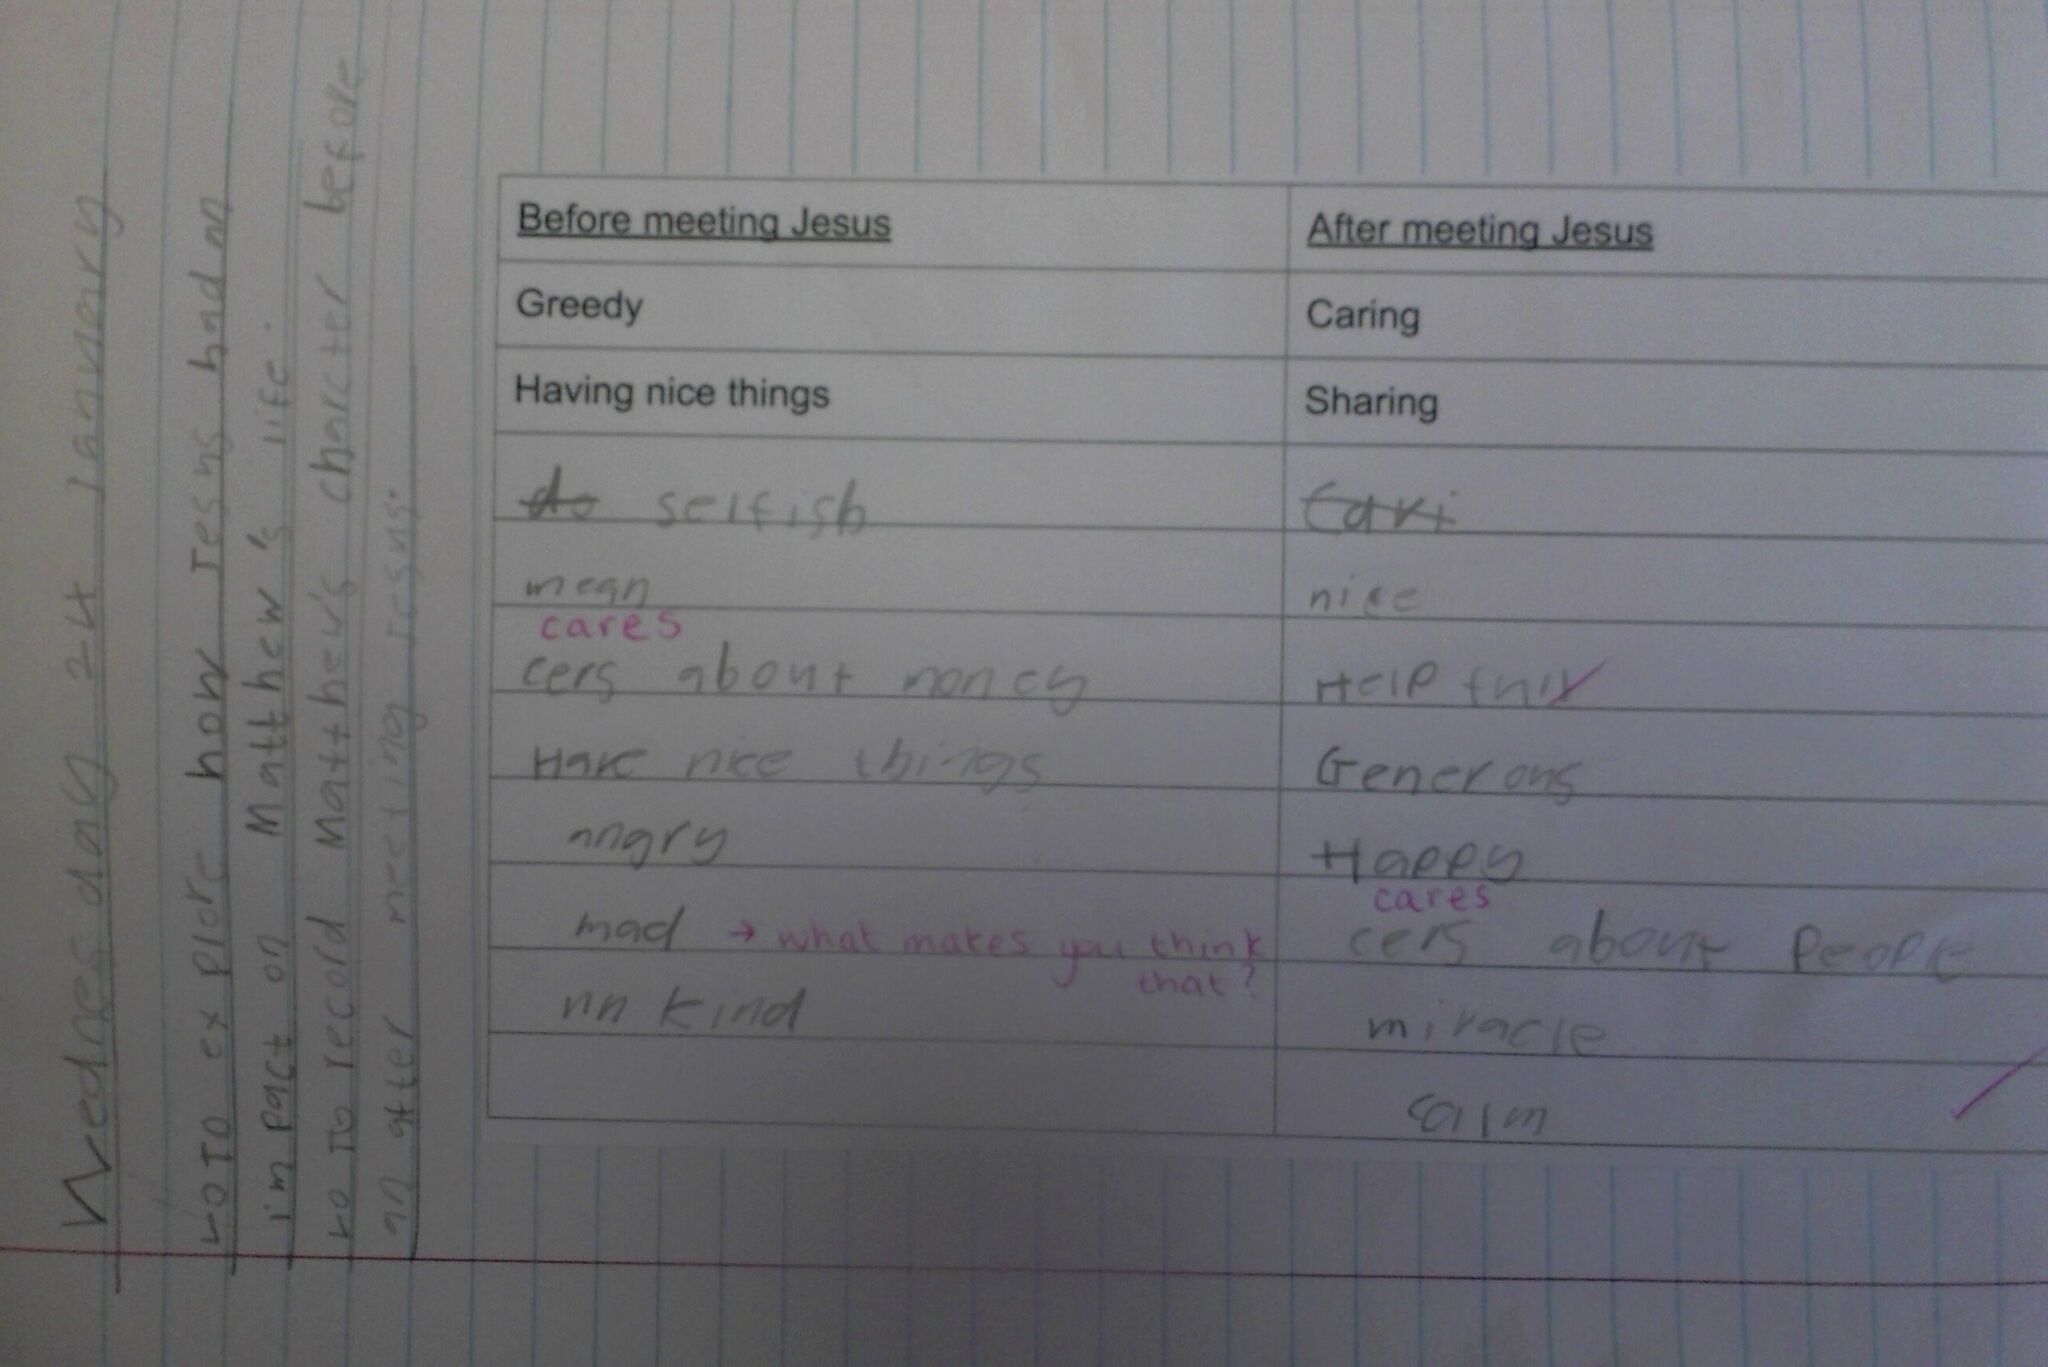 Wednesday 24 January
LO TO explore how Jesus had an
impact on Matthew's life.
LO To record Matthew's charcter before
an after meeting Jesus.
Before meeting Jesus
After meeting Jesus
Greedy
Caring
Having nice things
Sharing
do selfish
Cari
mean
nice
cares
cers about money
Helpfull
Have nice things
Generous
angry
Happy
cares
mad → what makes you think
that?
cers about people
un kind
miracle
calm